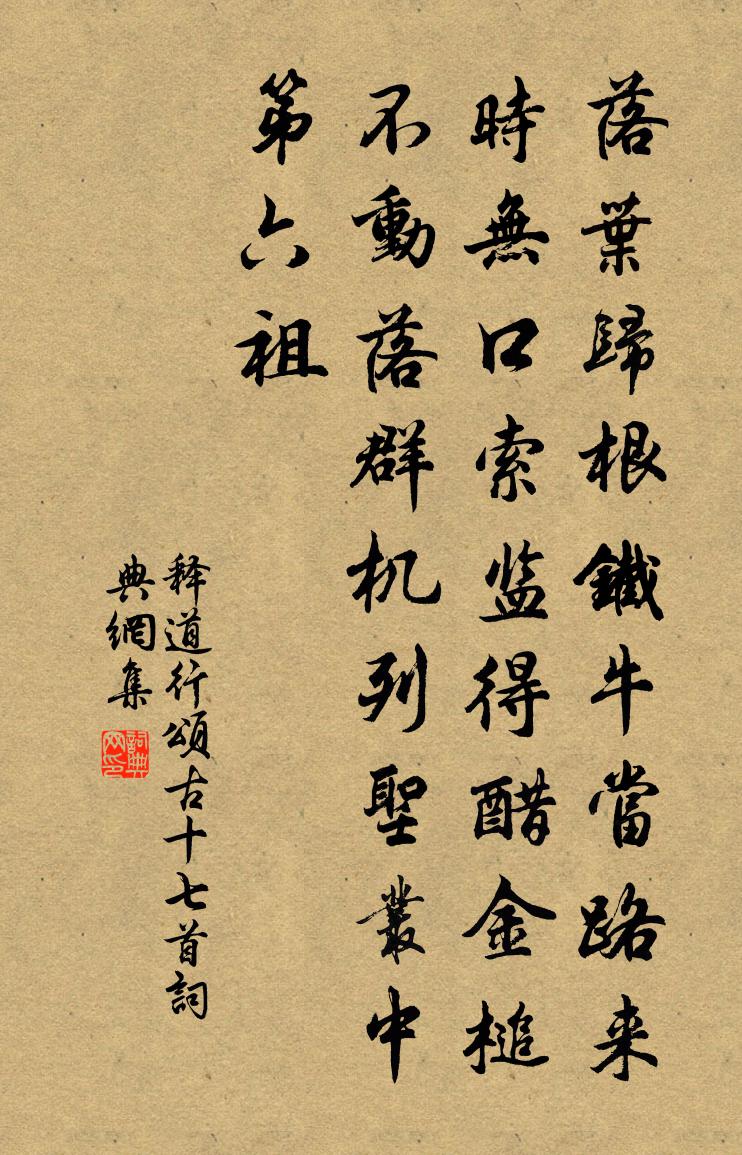 落葉歸根鐵牛當路来
時無口索盐得醋金槌
不動落群机列聖叢中
第六祖
释道行頌古十七首詞
典網集
詞典网印